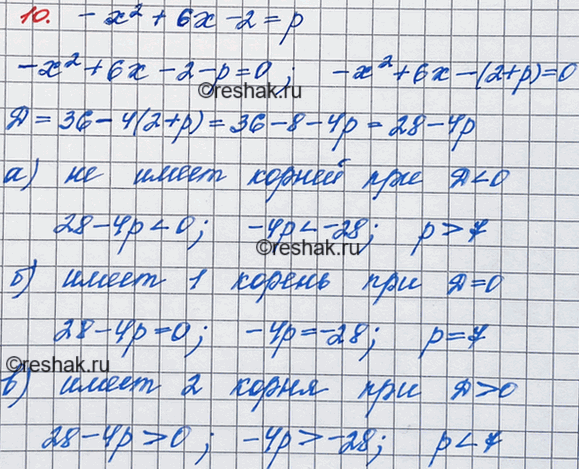 10. -x² + 6x - 2 = p
-x² + 6x - 2 - p = 0 ; -x² + 6x - (2+p) = 0
©reshak.ru
Д = 36 - 4(2+p) = 36 - 8 - 4p = 28 - 4p
а) не имеет корней при Д < 0
28 - 4p < 0 ; -4p < -28 ; p > 7
©reshak.ru
б) имеет 1 корень при Д = 0
28 - 4p = 0 ; -4p = -28 ; p = 7
©reshak.ru
в) имеет 2 корня при Д > 0
28 - 4p > 0 ; -4p > -28 ; p < 7